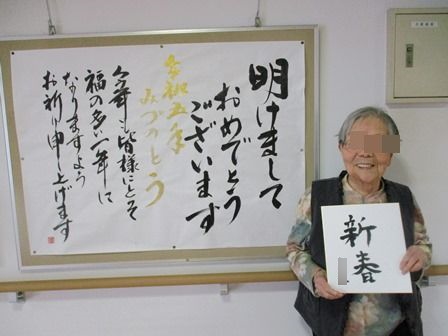 明けまして
おめでとう
ございます
令和五年
みづのとう
今年も皆様にとって
福の多い一年に
なりますよう
お祈り申し上げます
新春